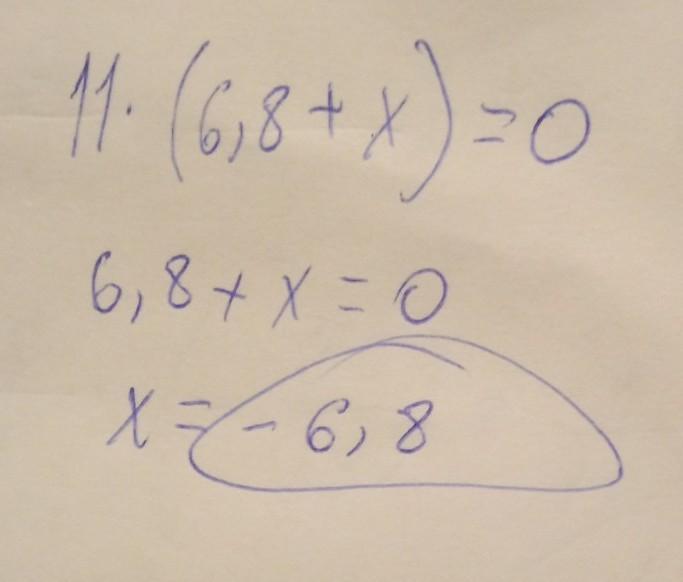 11·(6,8+x)=0
6,8+x=0
x=-6,8